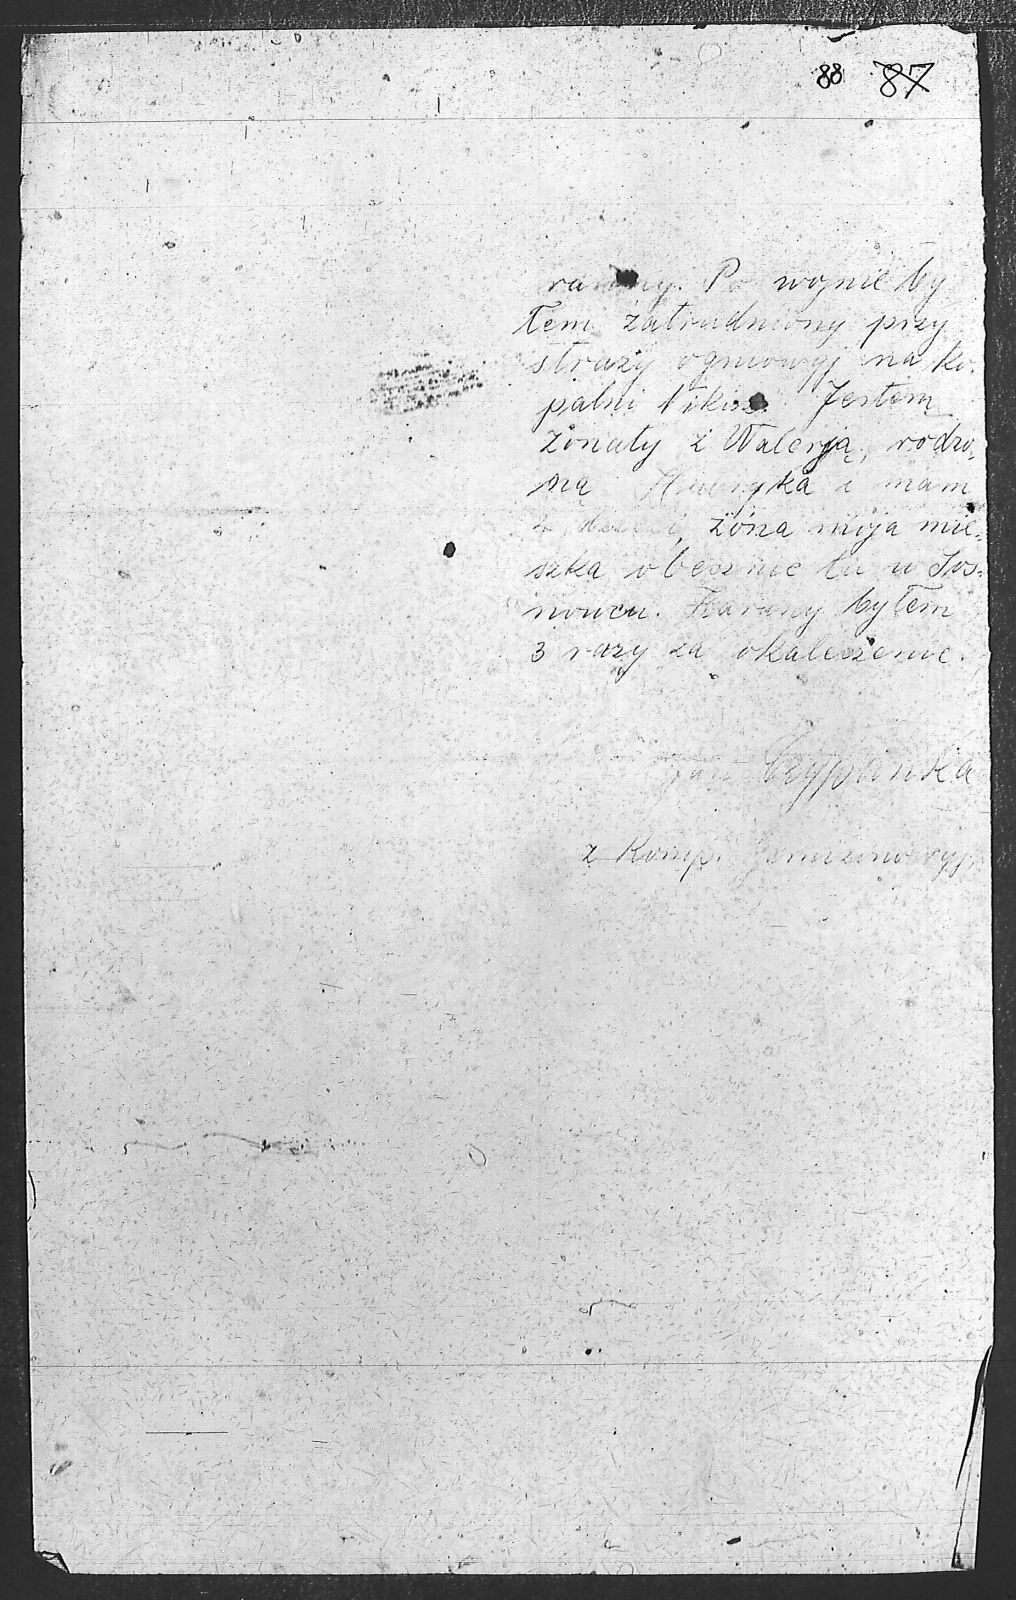 88 87
ranny. Po wojnie by
łem zatrudniony przy
straży ogniowyj na ko-
palni Nikisz. Jestem
żonaty z Walerją, rodzo-
ną i mam
dzieci, żona moja mie-
szka obecnie tu w Sos-
nowcu. Karany byłem
3 razy za okaleczenie.
z Komp.